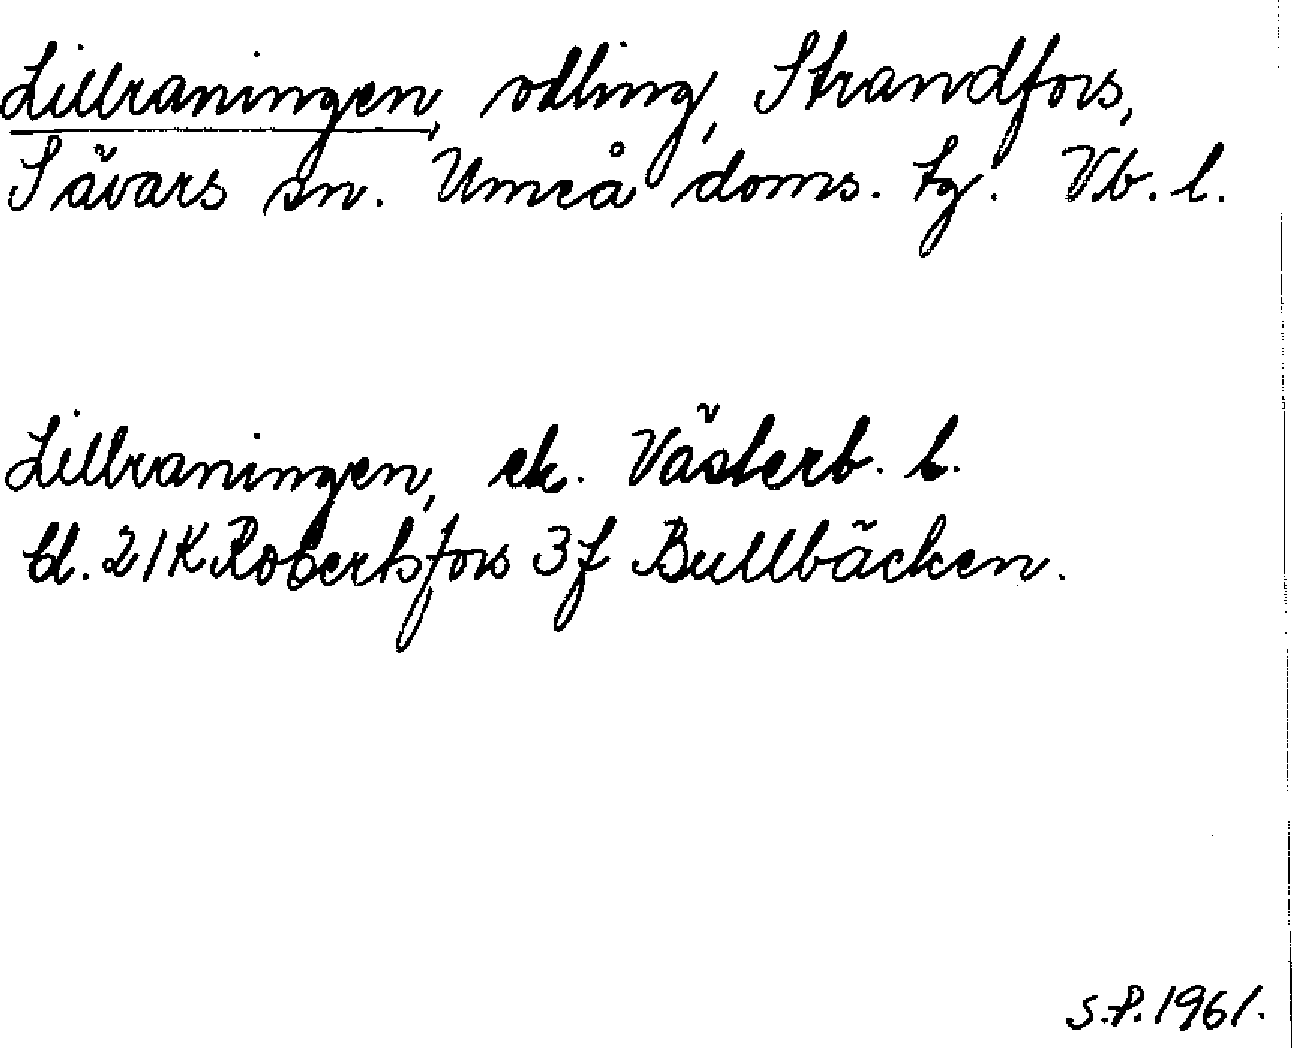 Lillraningen, odling, Strandfors,
Sävars sn. Umeå doms. tg. Vb. l.
Lillraningen, ek. Västerb. l.
bl. 21K Robertsfors 3f Bullbäcken.
S.P. 1961.